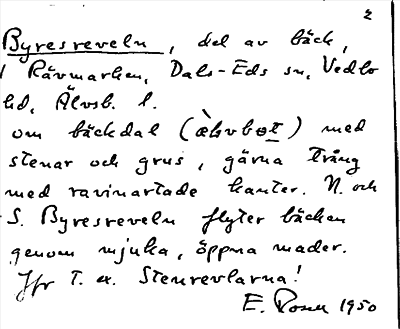 2
Byresreveln, del av bäck,
i Rävmarken, Dals-Eds sn, Vedbo
hd, Älvsb. l.
om bäckdal () med
stenar och grus, gärna trång
med ravinartade kanter. N. och
S. Byresreveln flyter bäcken
genom mjuka, öppna mader.
Jfr t. ex. Stenrevlarna!
E. 1950